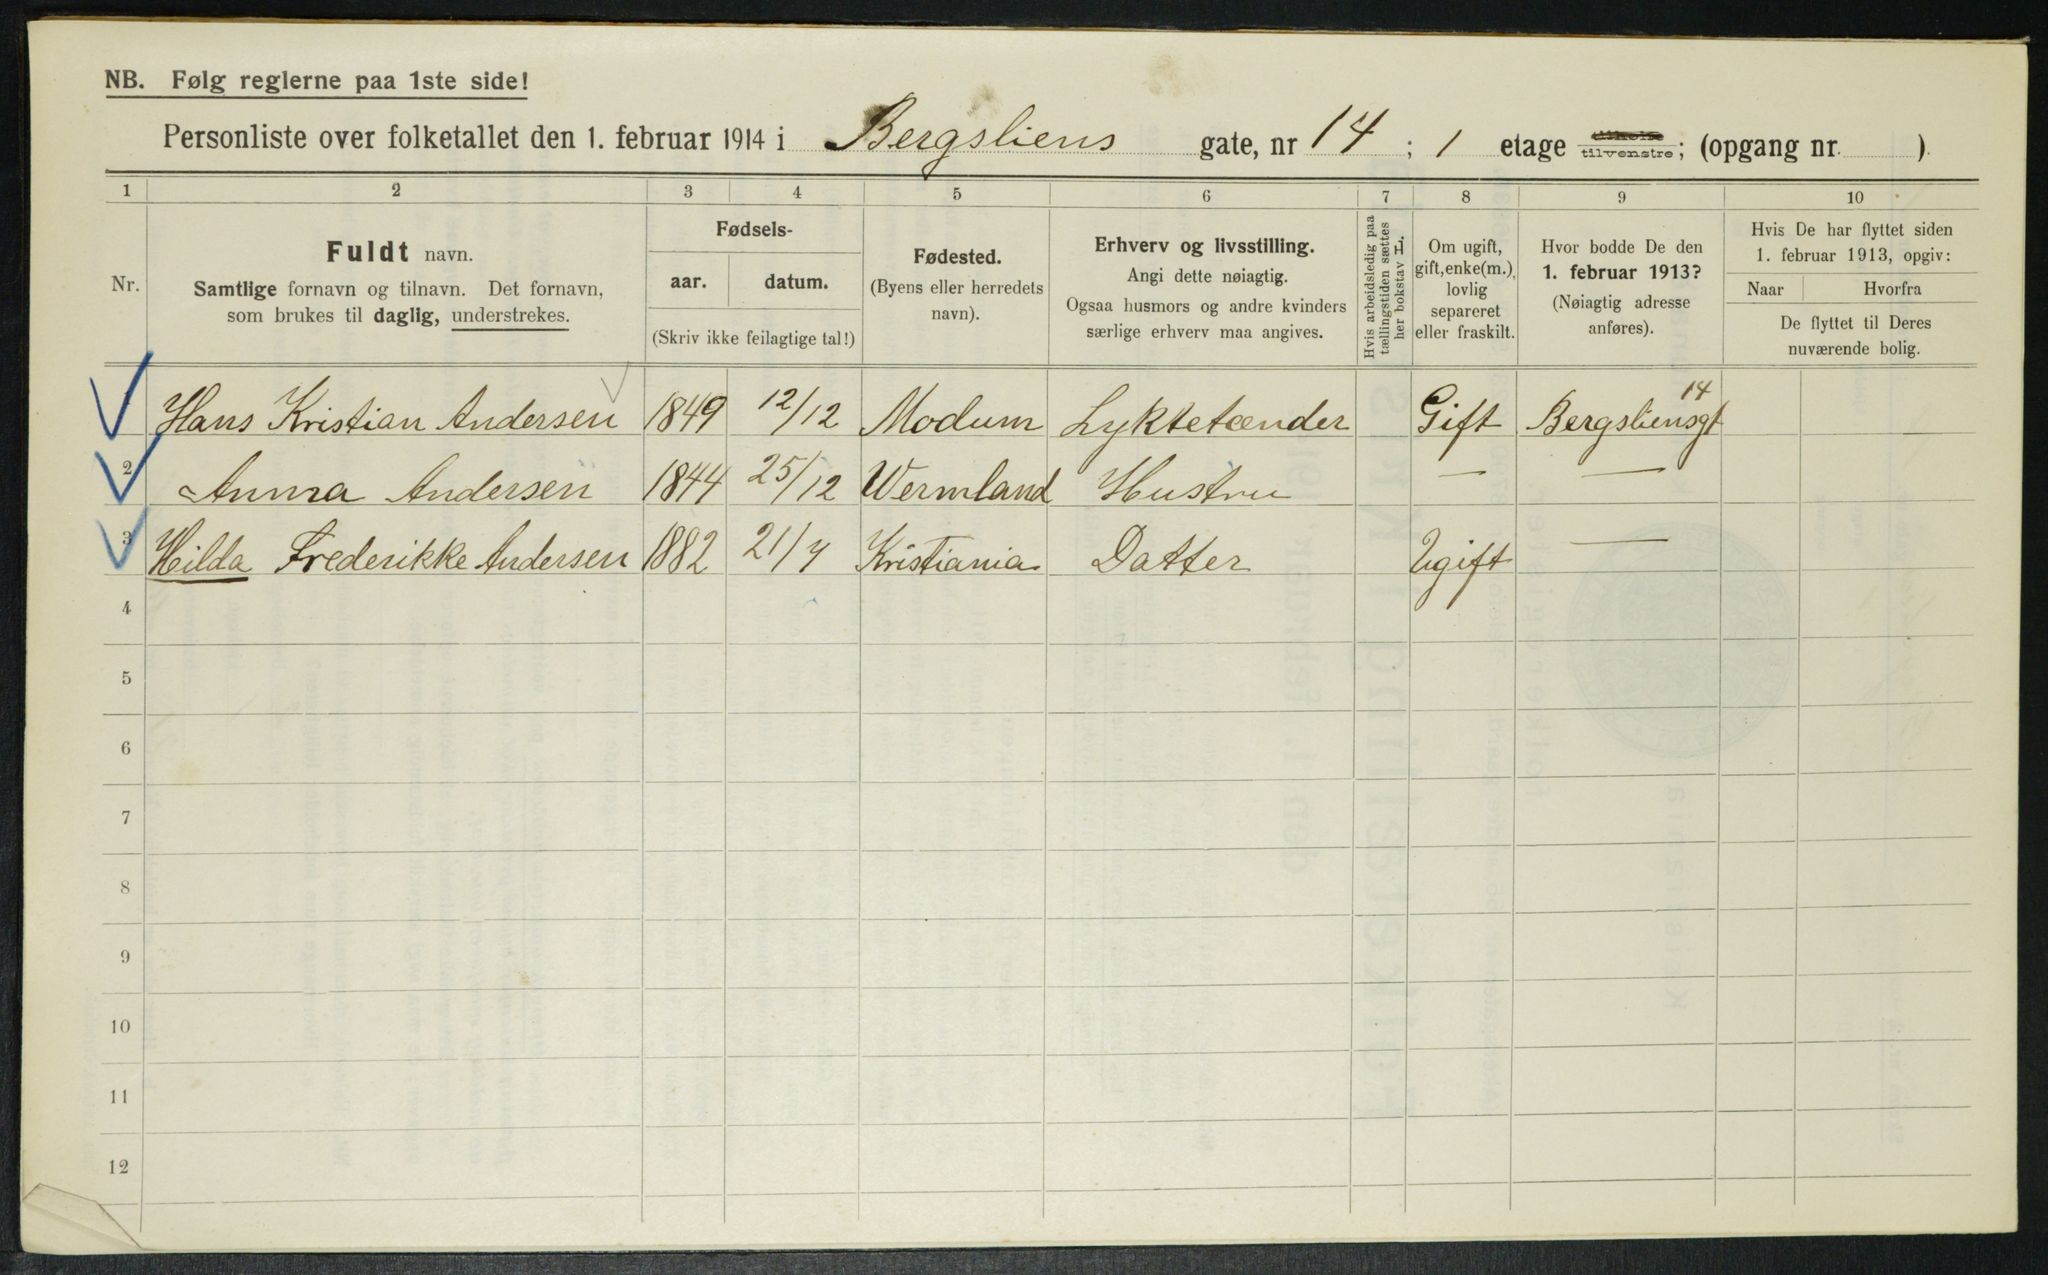 NB. Følg reglerne paa 1ste side!
Personliste over folketallet den 1. februar 1914 i Bergsliens gate, nr 14 ; 1 etage tilvenstre; (opgang nr. )
1 2 3 4 5 6 7 8 9 10
Nr.
Fuldt navn.
Samtlige fornavn og tilnavn. Det fornavn,
som brukes til daglig, understrekes.
Fødsels-
aar. datum.
(Skriv ikke feilagtige tal!)
Fødested.
(Byens eller herredets
navn).
Erhverv og livsstilling.
Angi dette nøiagtig.
Ogsaa husmors og andre kvinders
særlige erhverv maa angives.
Hvis arbeidsledig paa
tællingstiden sættes
her bokstav L.
Om ugift,
gift, enke(m.),
lovlig
separeret
eller fraskilt.
Hvor bodde De den
1. februar 1913?
(Nøiagtig adresse
anføres).
Hvis De har flyttet siden
1. februar 1913, opgiv:
Naar Hvorfra
De flyttet til Deres
nuværende bolig.
Hans Kristian Andersen 1849 12/12 Modum Lyktetænder Gift Bergsliensgt 14
2 Anna Andersen 1844 25/12 Wermland Hustru — —
3 Hilda Frederikke Andersen 1882 21/7 Kristiania Datter Ugift —
4
5
6
7
8
9
10
11
12